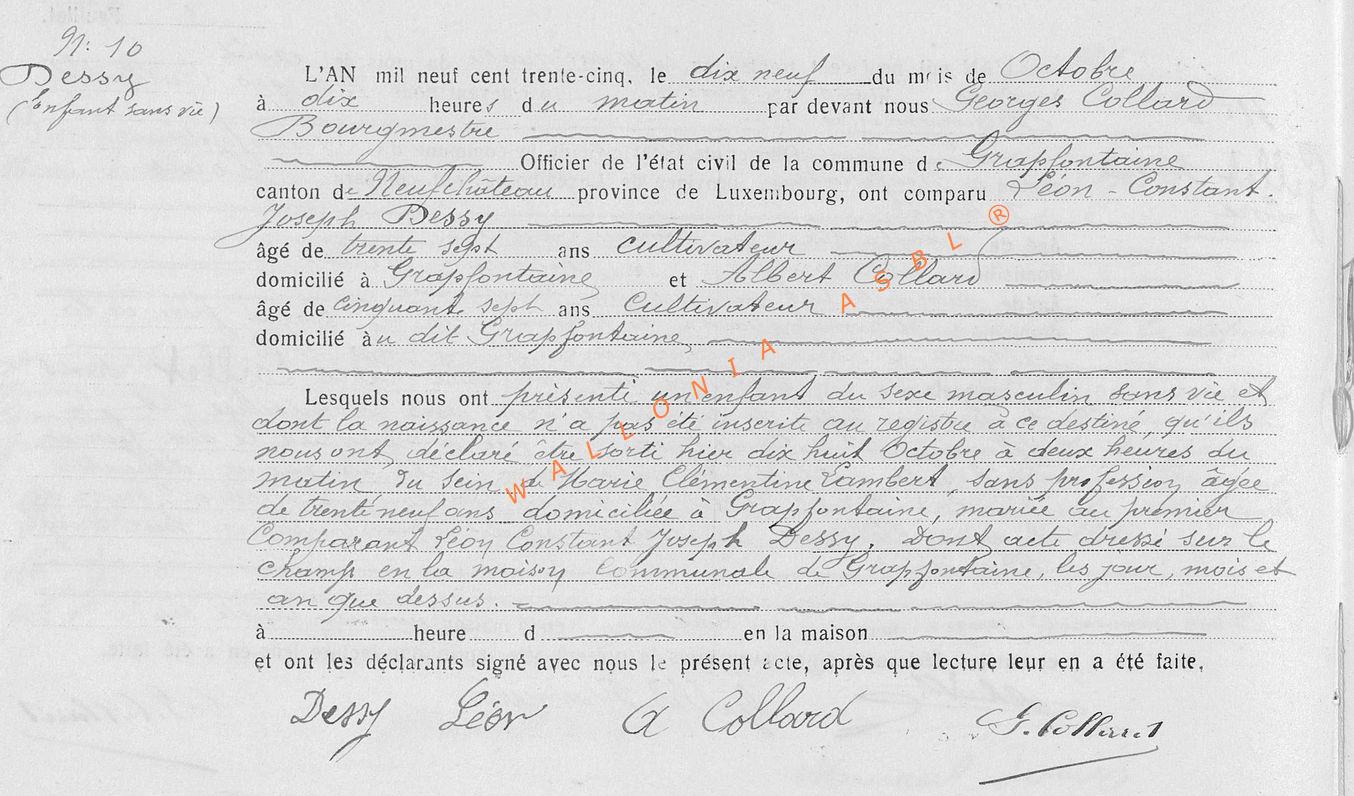 N: 10
Dessy
(Enfant sans vie)
L'AN mil neuf cent trente-cinq, le dix neuf du mois de Octobre
à dix heures du matin par devant nous Georges Collard
Bourgmestre
Officier de l'état civil de la commune de Grapfontaine
canton de Neufchâteau province de Luxembourg, ont comparu Léon-Constant-
Joseph Dessy
âgé de trente sept ans cultivateur
domicilié à Grapfontaine et Albert Collard
âgé de cinquante sept ans cultivateur
domicilié au dit Grapfontaine,
Lesquels nous ont présenté un enfant du sexe masculin sans vie et
dont la naissance n'a pas été inscrite au registre à ce destiné, qu'ils
nous ont déclaré être sorti hier dix huit Octobre à deux heures du
matin du sein de Marie Clémentine Lambert, sans profession, âgée
de trente neuf ans domiciliée à Grapfontaine, mariée au premier
Comparant Léon Constant Joseph Dessy. Dont acte dressé sur le
champ en la maison Communale de Grapfontaine, les jour, mois et
an que dessus.
à heure d en la maison
et ont les déclarants signé avec nous le présent acte, après que lecture leur en a été faite.
Dessy Léon A Collard G. Collard
WALLONIA ASBL ®